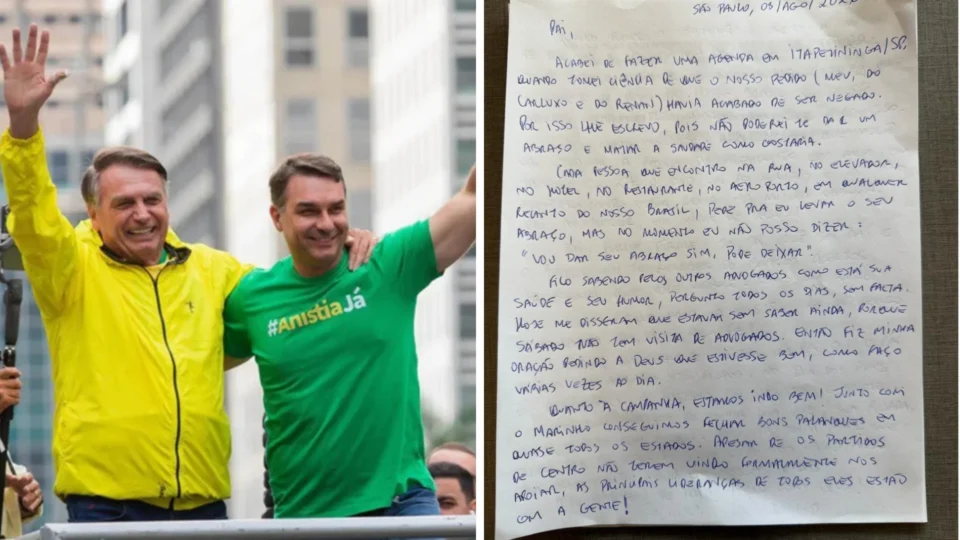 #AnistiaJá
SÃO PAULO, 03/AGO/
PAI,
ACABEI DE FAZER UMA AGENDA EM ITAPETININGA/SP,
QUANDO TOMEI CIÊNCIA DE QUE O NOSSO PEDIDO (MEU, DO
CARLUXO E DO RENAN) HAVIA ACABADO DE SER NEGADO.
POR ISSO LHE ESCREVO, POIS NÃO PODEREI TE DAR UM
ABRAÇO E MATAR A SAUDADE COMO GOSTARIA.
CADA PESSOA QUE ENCONTRO NA RUA, NO ELEVADOR,
NO HOTEL, NO RESTAURANTE, NO AEROPORTO, EM QUALQUER
RECANTO DO NOSSO BRASIL, PEDE PRA EU LEVAR O SEU
ABRAÇO, MAS NO MOMENTO EU NÃO POSSO DIZER:
"VOU DAR SEU ABRAÇO SIM, PODE DEIXAR"
FICO SABENDO PELOS OUTROS ADVOGADOS COMO ESTÁ SUA
SAÚDE E SEU HUMOR, PERGUNTO TODOS OS DIAS, SEM FALTA.
HOJE ME DISSERAM QUE ESTAVAM SEM SABER AINDA, PORQUE
SÁBADO NÃO TEM VISITA DE ADVOGADOS. ENTÃO FIZ MINHA
ORAÇÃO PEDINDO A DEUS QUE ESTIVESSE BEM, COMO FAÇO
VÁRIAS VEZES AO DIA.
QUANTO À CAMPANHA, ESTAMOS INDO BEM! JUNTO COM
O MARINHO CONSEGUIMOS FECHAR BONS PALANQUES EM
QUASE TODOS OS ESTADOS. APESAR DE OS PARTIDOS
DE CENTRO NÃO TEREM VINDO FORMALMENTE NOS
APOIAR, AS PRINCIPAIS LIDERANÇAS DE TODOS ELES ESTÃO
COM A GENTE!